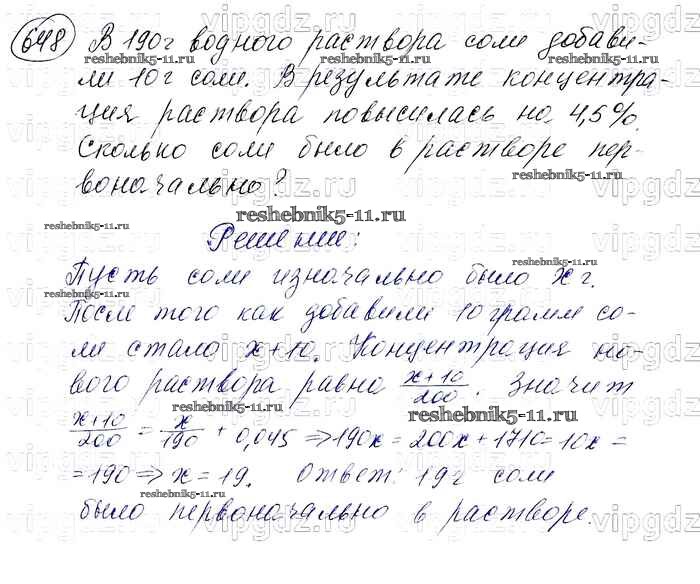 648 В 190 г водного раствора соли добави-
ли 10 г соли. В результате концентра-
ция раствора повысилась на 4,5%.
Сколько соли было в растворе пер-
воначально?
Решение:
Пусть соли изначально было x г.
После того как добавили 10 грамм со-
ли стало x+10. Концентрация но-
вого раствора равна x+10/200. Значит
x+10/200 = x/190 + 0,045 ⇒ 190x = 200x + 1710 = 10x =
= 190 ⇒ x = 19. Ответ: 19 г соли
было первоначально в растворе.
reshebnik5-11.ru
vipgdz.ru